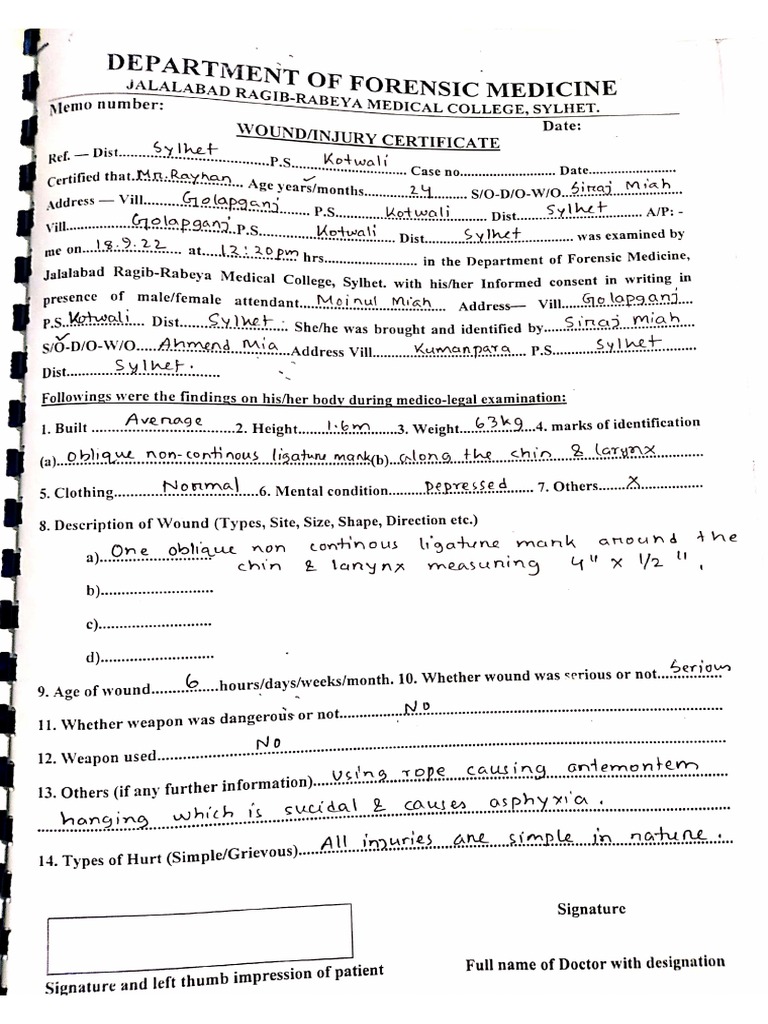 DEPARTMENT OF FORENSIC MEDICINE
JALALABAD RAGIB-RABEYA MEDICAL COLLEGE, SYLHET.
Memo number: Date:
WOUND/INJURY CERTIFICATE
Ref. — Dist.....Sylhet.....P.S.....Kotwali.....Case no.....Date.....
Certified that Mr. Rayhan.... Age years/months.....24.....S/O-D/O-W/O.. Siraj Miah
Address — Vill....Golapganj.....P.S.....Kotwali.....Dist.....Sylhet.....A/P: -
Vill.....Golapganj..P.S.....Kotwali.....Dist.....Sylhet.....was examined by
me on..18.9.22..at...12:20pm hrs.....in the Department of Forensic Medicine,
Jalalabad Ragib-Rabeya Medical College, Sylhet. with his/her Informed consent in writing in
presence of male/female attendant...Moinul Miah.....Address— Vill....Golapganj...
P.S..Kotwali.. Dist....Sylhet. She/he was brought and identified by....Siraj Miah
✓
S/O-D/O-W/O....Ahmend Mia.....Address Vill....Kumanpara...P.S.....Sylhet
Dist.....Sylhet.
Followings were the findings on his/her body during medico-legal examination:
1. Built.....Average.....2. Height.....1.6m.....3. Weight...63kg..4. marks of identification
(a)..oblique non-continous ligature mark(b)..along the chin & larynx
5. Clothing.....Normal....6. Mental condition.....Depressed.....7. Others...x.....
8. Description of Wound (Types, Site, Size, Shape, Direction etc.)
a)..One oblique non continous ligature mark around the
chin & larynx measuring 4" x 1/2 ".
b)..........................
c)..........................
d)..........................
9. Age of wound.....6....hours/days/weeks/month. 10. Whether wound was serious or not..Serious
11. Whether weapon was dangerous or not.....No.....
12. Weapon used.....No.....
13. Others (if any further information)...Using rope causing antemontem
hanging which is sucidal & causes asphyxia.
14. Types of Hurt (Simple/Grievous)...All injuries are simple in nature.
Signature
Signature and left thumb impression of patient Full name of Doctor with designation